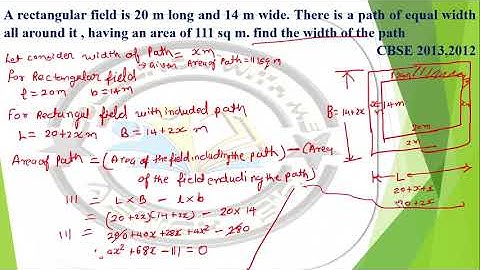 A rectangular field is 20 m long and 14 m wide. There is a path of equal width
all around it , having an area of 111 sq m. find the width of the path
CBSE 2013,2012
Let consider width of Path = x m
→ Given Area of Path = 111 sq m
For Rectangular field
l = 20m b = 14m
For Rectangul field with included path
L = 20+2x m B = 14+2x m
Area of path = (Area of the field including the path) - (Area
of the field excluding the path)
111 = L × B - l × b
= (20+2x)(14+2x) - 20×14
111 = 280+40x+28x+4x² - 280
4x²+68x-111=0
B = 14+2x
14m
20m
L
20+x+x
20+2x